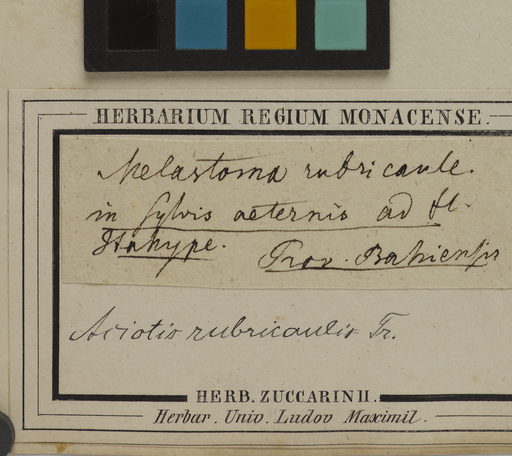 HERBARIUM REGIUM MONACENSE.
Melastoma rubricaule.
in Sylvis aeternis ad fl.
Itahype. Prov. Bahiensis
Aciotis rubricaulis Tr.
HERB. ZUCCARINII.
Herbar. Univ. Ludov Maximil.